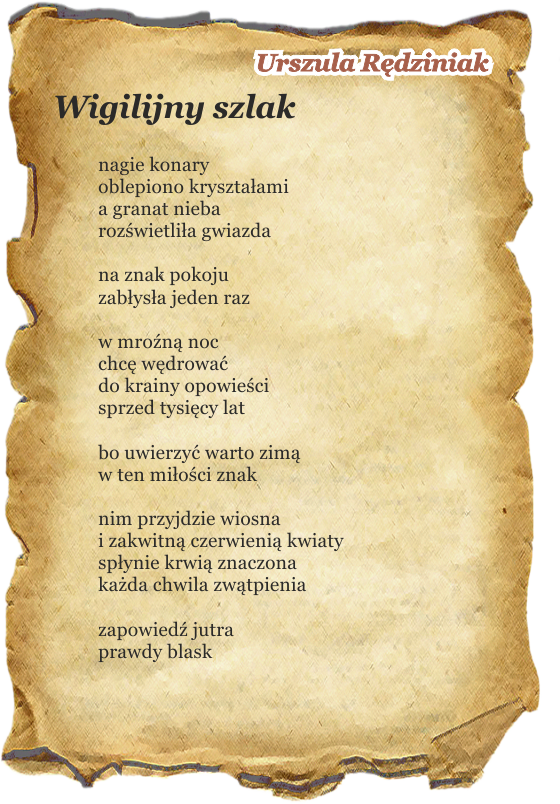 Urszula Rędziniak
Wigilijny szlak
nagie konary
oblepiono kryształami
a granat nieba
rozświetliła gwiazda
na znak pokoju
zabłysła jeden raz
w mroźną noc
chcę wędrować
do krainy opowieści
sprzed tysięcy lat
bo uwierzyć warto zimą
w ten miłości znak
nim przyjdzie wiosna
i zakwitną czerwienią kwiaty
spłynie krwią znaczona
każda chwila zwątpienia
zapowiedź jutra
prawdy blask